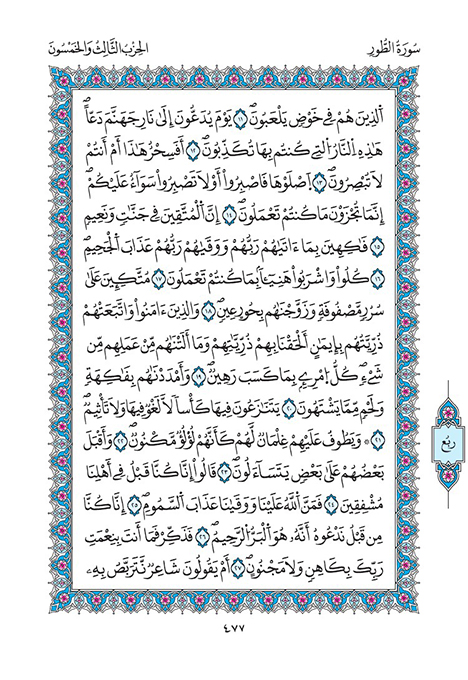 سُورَةُ الطُّورِ
الحِزْبُ الثَّالِثُ وَالخَمْسُونَ
الذِينَ هُمْ فِي خَوْضٍ يَلْعَبُونَۖ ١٠ يَوْمَ يُدَعُّونَ إِلَىٰ نَارِ جَهَنَّمَ دَعّاًۖ
هَٰذِهِ النَّارُ التِي كُنتُم بِهَا تُكَذِّبُونَۖ ١٢ أَفَسِحْرٌ هَٰذَا أَمْ أَنتُمْ
لَا تُبْصِرُونَۖ ١٣ اَصْلَوْهَا فَاصْبِرُوا أَوْ لَا تَصْبِرُوا سَوَآءٌ عَلَيْكُمْۖ
إِنَّمَا تُجْزَوْنَ مَا كُنتُمْ تَعْمَلُونَۖ ١٤ إِنَّ الْمُتَّقِينَ فِي جَنَّٰتٍ وَنَعِيمٍ
١٥ فَٰكِهِينَ بِمَا ءَاتَىٰهُمْ رَبُّهُمْ وَوَقَىٰهُمْ رَبُّهُمْ عَذَابَ الْجَحِيمِۖ
١٦ كُلُوا وَاشْرَبُوا هَنِيٓـٔاً بِمَا كُنتُمْ تَعْمَلُونَ ١٧ مُتَّكِـِٔينَ عَلَىٰ
سُرُرٍ مَّصْفُوفَةٍ وَزَوَّجْنَٰهُم بِحُورٍ عِينٍۖ ١٨ وَالذِينَ ءَامَنُوا وَاتَّبَعَتْهُمْ
ذُرِّيَّتُهُم بِإِيمَٰنٍ اَلْحَقْنَا بِهِمْ ذُرِّيَّٰتِهِمْ وَمَا أَلَتْنَٰهُم مِّنْ عَمَلِهِم مِّن
شَےْءٍۖ كُلُّ اُمْرِےٍٕ بِمَا كَسَبَ رَهِينٌۖ ١٩ وَأَمْدَدْنَٰهُم بِفَٰكِهَةٍ
وَلَحْمٍ مِّمَّا يَشْتَهُونَۖ ٢٠ يَتَنَٰزَعُونَ فِيهَا كَأْساً لَّا لَغْوٌ فِيهَا وَلَا تَأْثِيمٌۖ
٢١ وَيَطُوفُ عَلَيْهِمْ غِلْمَانٌ لَّهُمْ كَأَنَّهُمْ لُؤْلُؤٌ مَّكْنُونٌۖ ٢٢ وَأَقْبَلَ
بَعْضُهُمْ عَلَىٰ بَعْضٍ يَتَسَآءَلُونَۖ ٢٣ قَالُوا إِنَّا كُنَّا قَبْلُ فِي أَهْلِنَا
مُشْفِقِينَ ٢٤ فَمَنَّ اَللَّهُ عَلَيْنَا وَوَقَىٰنَا عَذَابَ السَّمُومِۖ ٢٥ إِنَّا كُنَّا
مِن قَبْلُ نَدْعُوهُ أَنَّهُۥ هُوَ الْبَرُّ الرَّحِيمُۖ ٢٦ فَذَكِّرْ فَمَا أَنتَ بِنِعْمَتِ
رَبِّكَ بِكَاهِنٍ وَلَا مَجْنُونٍۖ ٢٧ أَمْ يَقُولُونَ شَاعِرٌ نَّتَرَبَّصُ بِهِۦ
ربع
٤٧٧